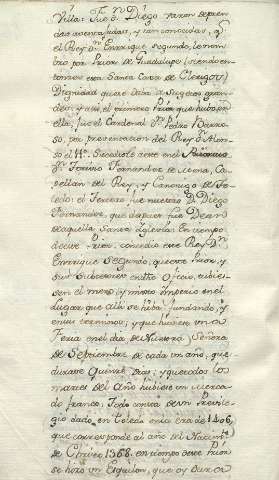 Villa: fue Dn. Diego varon de pren-
das aventajadas, y tan conocidas, q.e
el Rey Dn. Enrrique segundo, le nom-
bro por Prior de Guadalupe (siendo en-
tonces esta Santa Casa de Clerigos)
Dignidad que se daba a sugetos gran-
des, y asi, el primero Prior que hubo en
ella, fue el Cardenal Dn. Pedro Barro-
so, por presentacion del Rey Dn. Alon-
so el 11º. Sucediole este en el Priorato
Dn. Toribio Fernandez de Mena, Ca-
pellan del Rey, y Canonigo de To-
ledo: el Tercero fue nuestro Dn. Diego
Fernandez, que despues fue Dean
de aquella Santa Iglesia. En tiempo
de este Prior, concedio este Rey Dn.
Enrrique Segundo, que este Prior, y
sus Subcesores en dho Oficio, tubie-
sen el mero, y mixto imperio en el
Lugar que alli se habia fundando, y
en sus terminos, y que hubiese una
Feria en el dia de Nuestra Señora
de Septiembre de cada un año, que
durase Quince dias, y que todos los
martes del Año hubiese un merca-
do franco, Todo consta de un Privile-
gio dado en Toledo en la era de 1406,
que corresponde al año del Nacim.to
de Christo 1368. en tiempo de este Prior
se hizo un Esquilon, que oy dura en